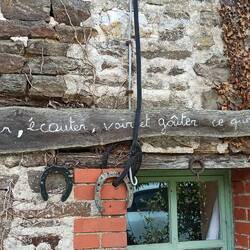 r, écouter, voir et goûter ce qu